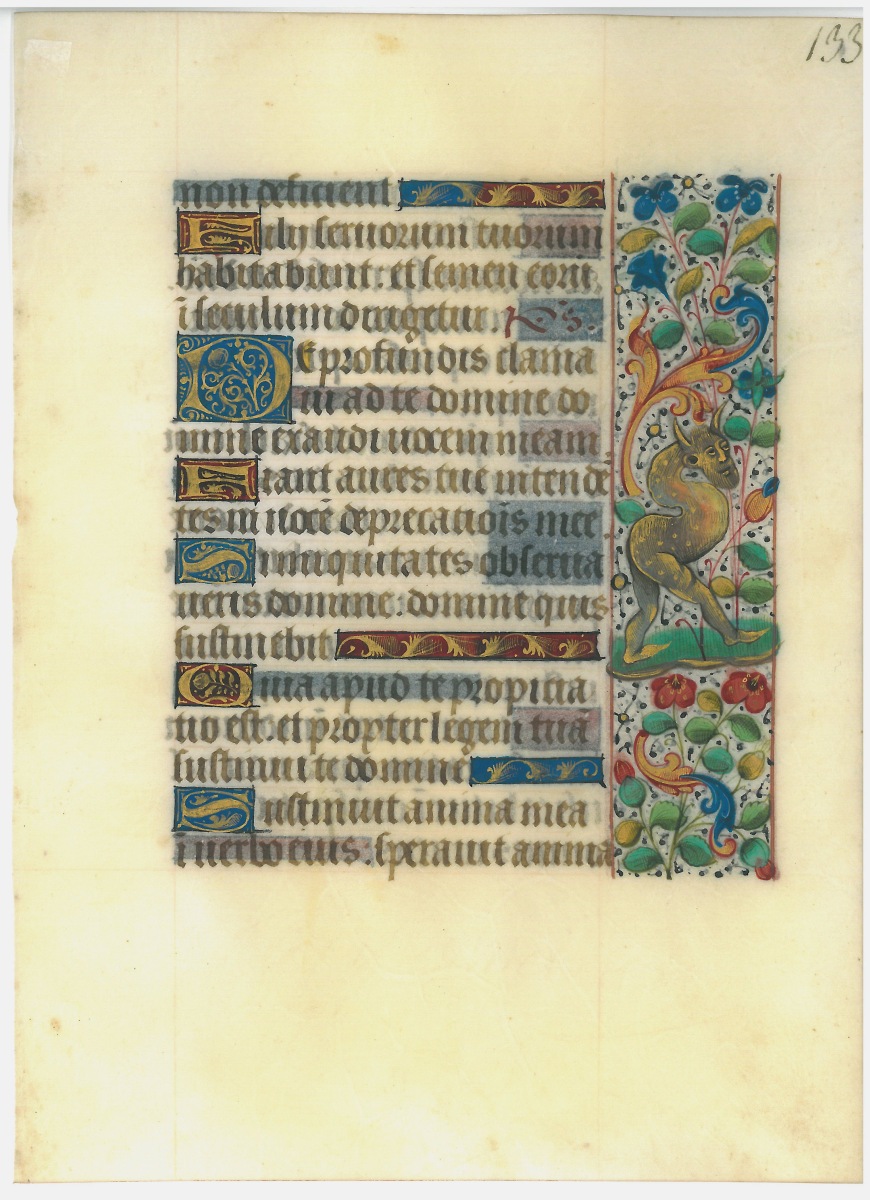 133
non deficient.
Filij seruorum tuorum
habitabunt: et semen eorū
ī seculum dirigetur. Ps.
De profundis clama
ui ad te domine do
mine exaudi uocem meam
Fiant aures tue intendē
tes in uocē deprecatiōis mee
Si iniquitates obserua
ueris domine: domine quis
sustinebit
Quia apud te propicia
tio est. et propter legem tuā
sustinui te domine
Sustinuit anima mea
ī uerbo eius. sperauit anima